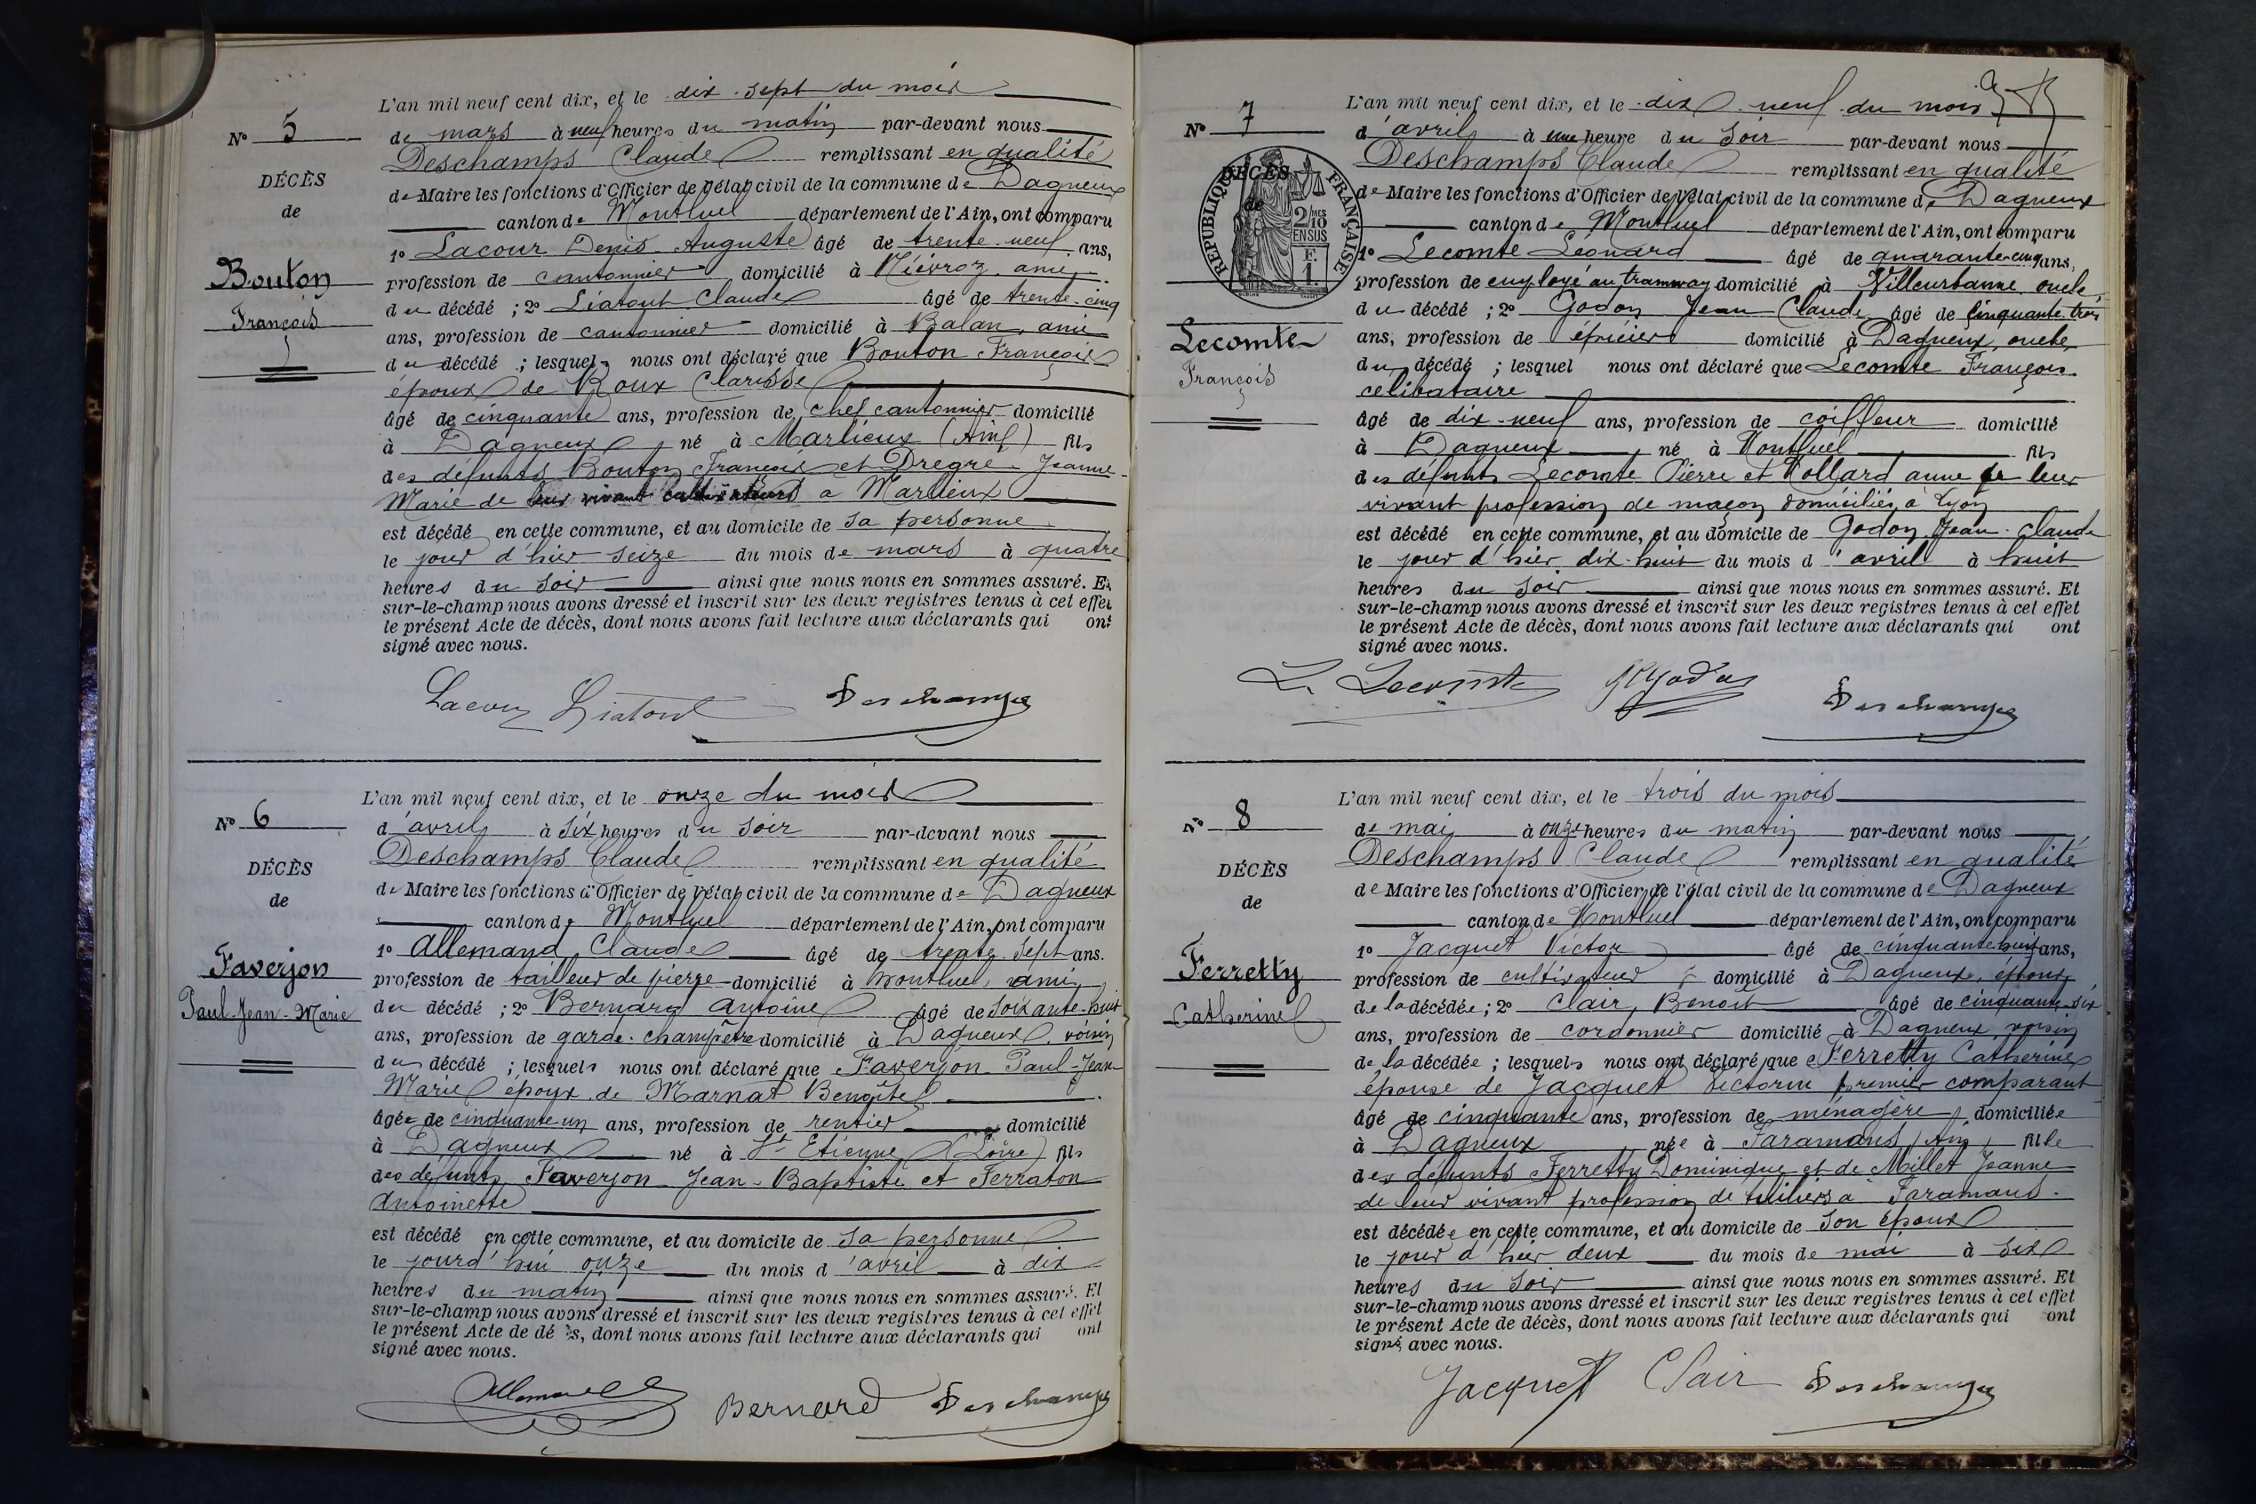 N° 5
DÉCÈS
de
Bouton
François
L'an mil neuf cent dix, et le dix-sept du mois
de mars à neuf heures du matin par-devant nous
Deschamps Claude remplissant en qualité
de Maire les fonctions d'Officier de l'état civil de la commune de Dagneux
canton de Montluel département de l'Ain, ont comparu
1° Lacour Denis Auguste âgé de trente-neuf ans,
profession de cantonnier domicilié à Niévroz ami
du décédé ; 2° Liatout Claude âgé de trente-cinq
ans, profession de cantonnier domicilié à Balan, ami
du décédé ; lesquels nous ont déclaré que Bouton François
époux de Roux Clarisse
âgé de cinquante ans, profession de chef cantonnier domicilié
à Dagneux né à Marlieux (Ain) fils
des défunts Bouton François et Dregre Jeanne-
Marie de leur vivant cultivateurs a Marlieux
est décédé en cette commune, et au domicile de sa personne
le jour d'hier seize du mois de mars à quatre
heures du soir ainsi que nous nous en sommes assuré. Et
sur-le-champ nous avons dressé et inscrit sur les deux registres tenus à cet effet
le présent Acte de décès, dont nous avons fait lecture aux déclarants qui ont
signé avec nous.
Lacour Liatout Deschamps
N° 6
DÉCÈS
de
Faverjon
Paul-Jean-Marie
L'an mil neuf cent dix, et le onze du mois
d'avril à six heures du soir par-devant nous
Deschamps Claude remplissant en qualité
de Maire les fonctions d'Officier de l'état civil de la commune de Dagneux
canton de Montluel département de l'Ain, ont comparu
1° Allemand Claude âgé de trente sept ans.
profession de tailleur de pierre domicilié à Montluel ami
du décédé ; 2° Bernard Antoine âgé de soixante-huit
ans, profession de garde-champêtre domicilié à Dagneux, voisin
du décédé ; lesquels nous ont déclaré que Faverjon Paul-Jean-
Marie époux de Marnat Benoîte
âgé de cinquante-un ans, profession de rentier domicilié
à Dagneux né à St Etienne (Loire) fils
des defunts Faverjon Jean-Baptiste et Ferraton
Antoinette
est décédé en cette commune, et au domicile de sa personne
le jourd'hui onze du mois d'avril à dix
heures du matin ainsi que nous nous en sommes assuré. Et
sur-le-champ nous avons dressé et inscrit sur les deux registres tenus à cet effet
le présent Acte de décès, dont nous avons fait lecture aux déclarants qui ont
signé avec nous.
Allemand Bernard Deschamps
N° 7
DÉCÈS
de
RÉPUBLIQUE FRANÇAISE
2/10 MES
EN SUS
F.
1.
Lecomte
François
L'an mil neuf cent dix, et le dix neuf du mois
d'avril à une heure du soir par-devant nous
Deschamps Claude remplissant en qualité
de Maire les fonctions d'Officier de l'état civil de la commune de Dagneux
canton de Montluel département de l'Ain, ont comparu
1° Lecomte Leonard âgé de quarante-cinq ans,
profession de employé au tramway domicilié à Villeurbanne oncle
du décédé ; 2° Godon Jean Claude âgé de cinquante-trois
ans, profession de épicier domicilié à Dagneux, oncle
du décédé ; lesquel nous ont déclaré que Lecomte François
celibataire
âgé de dix-neuf ans, profession de coiffeur domicilié
à Dagneux né à Montluel fils
des défunts Lecomte Pierre et Vollard anne de leur
vivant profession de maçon domiciliés à Lyon
est décédé en cette commune, et au domicile de Godon Jean-Claude
le jour d'hier dix-huit du mois d'avril à huit
heures du soir ainsi que nous nous en sommes assuré. Et
sur-le-champ nous avons dressé et inscrit sur les deux registres tenus à cet effet
le présent Acte de décès, dont nous avons fait lecture aux déclarants qui ont
signé avec nous.
L. Lecomte Godon Deschamps
N° 8
DÉCÈS
de
Ferretty
Catherine
L'an mil neuf cent dix, et le trois du mois
de mai à onze heures du matin par-devant nous
Deschamps Claude remplissant en qualité
de Maire les fonctions d'Officier de l'état civil de la commune de Dagneux
canton de Montluel département de l'Ain, ont comparu
1° Jacquet Victor âgé de cinquante huit ans,
profession de cultivateur domicilié à Dagneux, époux
de la décédée ; 2° Clair, Benoit âgé de cinquante-six
ans, profession de cordonnier domicilié à Dagneux voisin
de la décédée ; lesquels nous ont déclaré que Ferretty Catherine
épouse de Jacquet Victorin premier comparant
âgé de cinquante ans, profession de ménagère domiciliée
à Dagneux née à Faramans (Ain) fille
des défunts Ferretty Dominique et de Millet Jeanne
de leur vivant profession de tuiliers à Faramans.
est décédée en cette commune, et au domicile de son époux
le jour d'hier deux du mois de mai à six
heures du soir ainsi que nous nous en sommes assuré. Et
sur-le-champ nous avons dressé et inscrit sur les deux registres tenus à cet effet
le présent Acte de décès, dont nous avons fait lecture aux déclarants qui ont
signé avec nous.
Jacquet Clair Deschamps